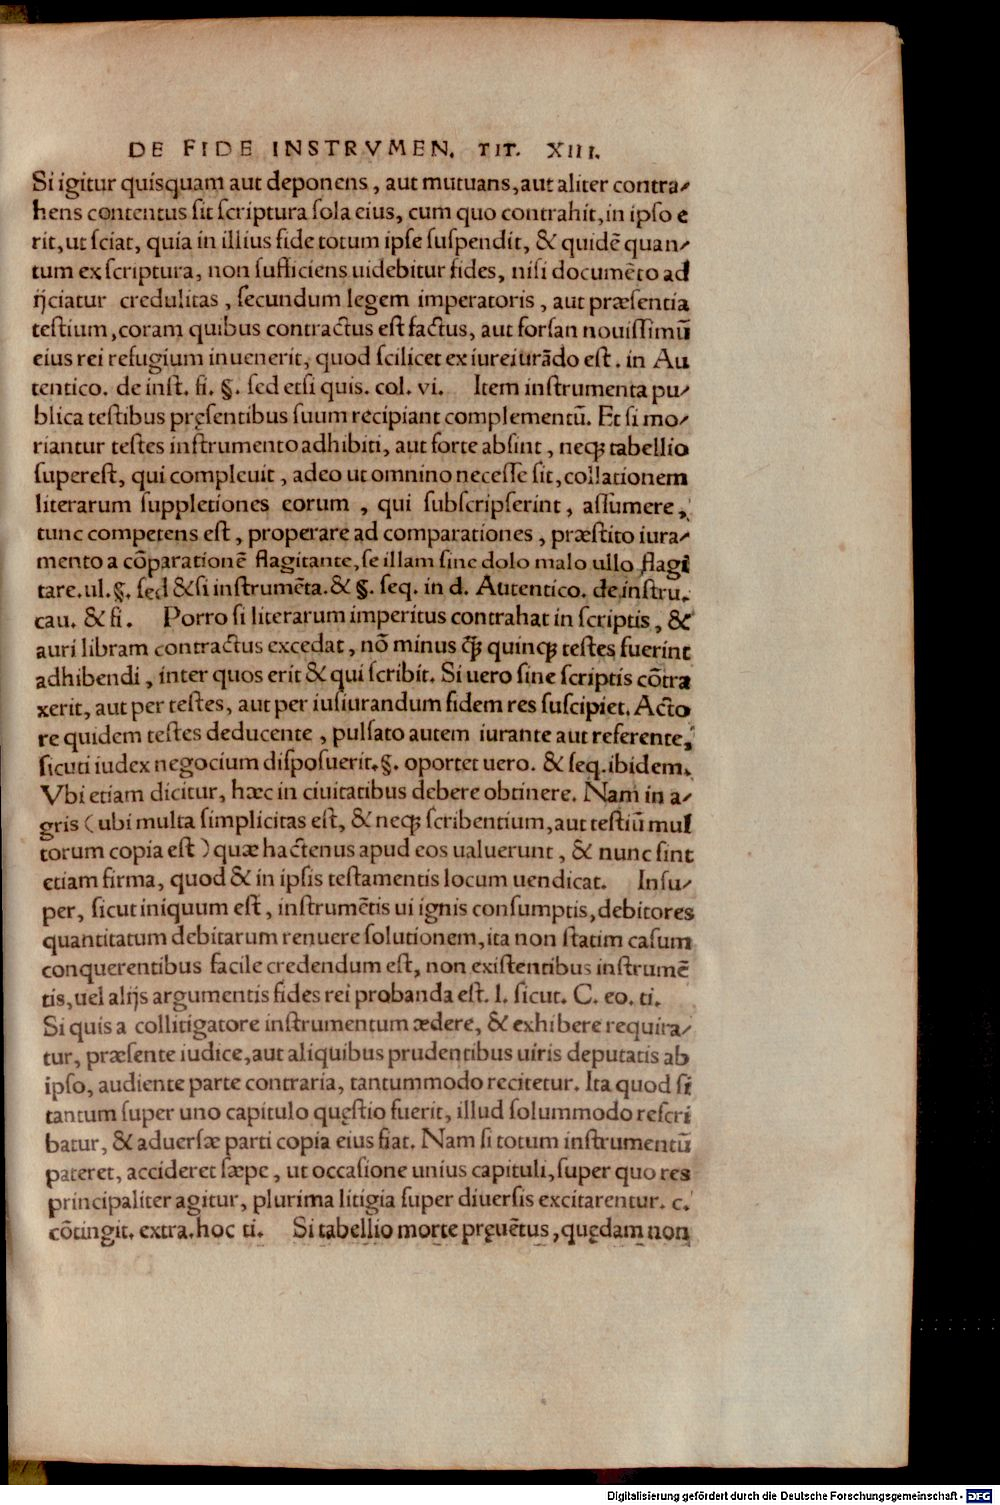 DE FIDE INSTRVMEN. TIT. XIII.
Si igitur quisquam aut deponens, aut mutuans, aut aliter contra-
hens contentus sit scriptura sola eius, cum quo contrahit, in ipso e
rit, ut sciat, quia in illius fide totum ipse suspendit, & quidē quan-
tum ex scriptura, non sufficiens uidebitur fides, nisi documēto ad
ijciatur credulitas, secundum legem imperatoris, aut præsentia
testium, coram quibus contractus est factus, aut forsan nouissimū
eius rei refugium inuenerit, quod scilicet ex iureiurādo est. in Au
tentico. de inst. fi. §. sed etsi quis. col. vi. Item instrumenta pu-
blica testibus pręsentibus suum recipiant complementū. Et si mo-
riantur testes instrumento adhibiti, aut forte absint, neqꝫ tabellio
superest, qui compleuit, adeo ut omnino necesse sit, collationem
literarum suppletiones eorum, qui subscripserint, assumere,
tunc competens est, properare ad comparationes, præstito iura-
mento a cōparationē flagitante, se illam sine dolo malo ullo flagi
tare. ul. §. sed & si instrumēta. & §. seq. in d. Autentico. de instru.
cau. & fi. Porro si literarum imperitus contrahat in scriptis, &
auri libram contractus excedat, nō minus ꝗ̃ꝫ quinqꝫ testes fuerint
adhibendi, inter quos erit & qui scribit. Si uero sine scriptis cōtra
xerit, aut per testes, aut per iusiurandum fidem res suscipiet. Acto
re quidem testes deducente, pulsato autem iurante aut referente,
sicuti iudex negocium disposuerit. §. oportet uero. & seq. ibidem.
Vbi etiam dicitur, hæc in ciuitatibus debere obtinere. Nam in a-
gris (ubi multa simplicitas est, & neqꝫ scribentium, aut testiū mul
torum copia est) quæ hactenus apud eos ualuerunt, & nunc sint
etiam firma, quod & in ipsis testamentis locum uendicat. Insu-
per, sicut iniquum est, instrumētis ui ignis consumptis, debitores
quantitatum debitarum renuere solutionem, ita non statim casum
conquerentibus facile credendum est, non existentibus instrumē
tis, uel alijs argumentis fides rei probanda est. l. sicut. C. eo. ti.
Si quis a collitigatore instrumentum ædere, & exhibere requira-
tur, præsente iudice, aut aliquibus prudentibus uiris deputatis ab
ipso, audiente parte contraria, tantummodo recitetur. Ita quod si
tantum super uno capitulo quęstio fuerit, illud solummodo rescri
batur, & aduersæ parti copia eius fiat. Nam si totum instrumentū
pateret, accideret sæpe, ut occasione unius capituli, super quo res
principaliter agitur, plurima litigia super diuersis excitarentur. c.
cōtingit. extra. hoc ti. Si tabellio morte pręuētus, quędam non
Digitalisierung gefördert durch die Deutsche Forschungsgemeinschaft - DFG